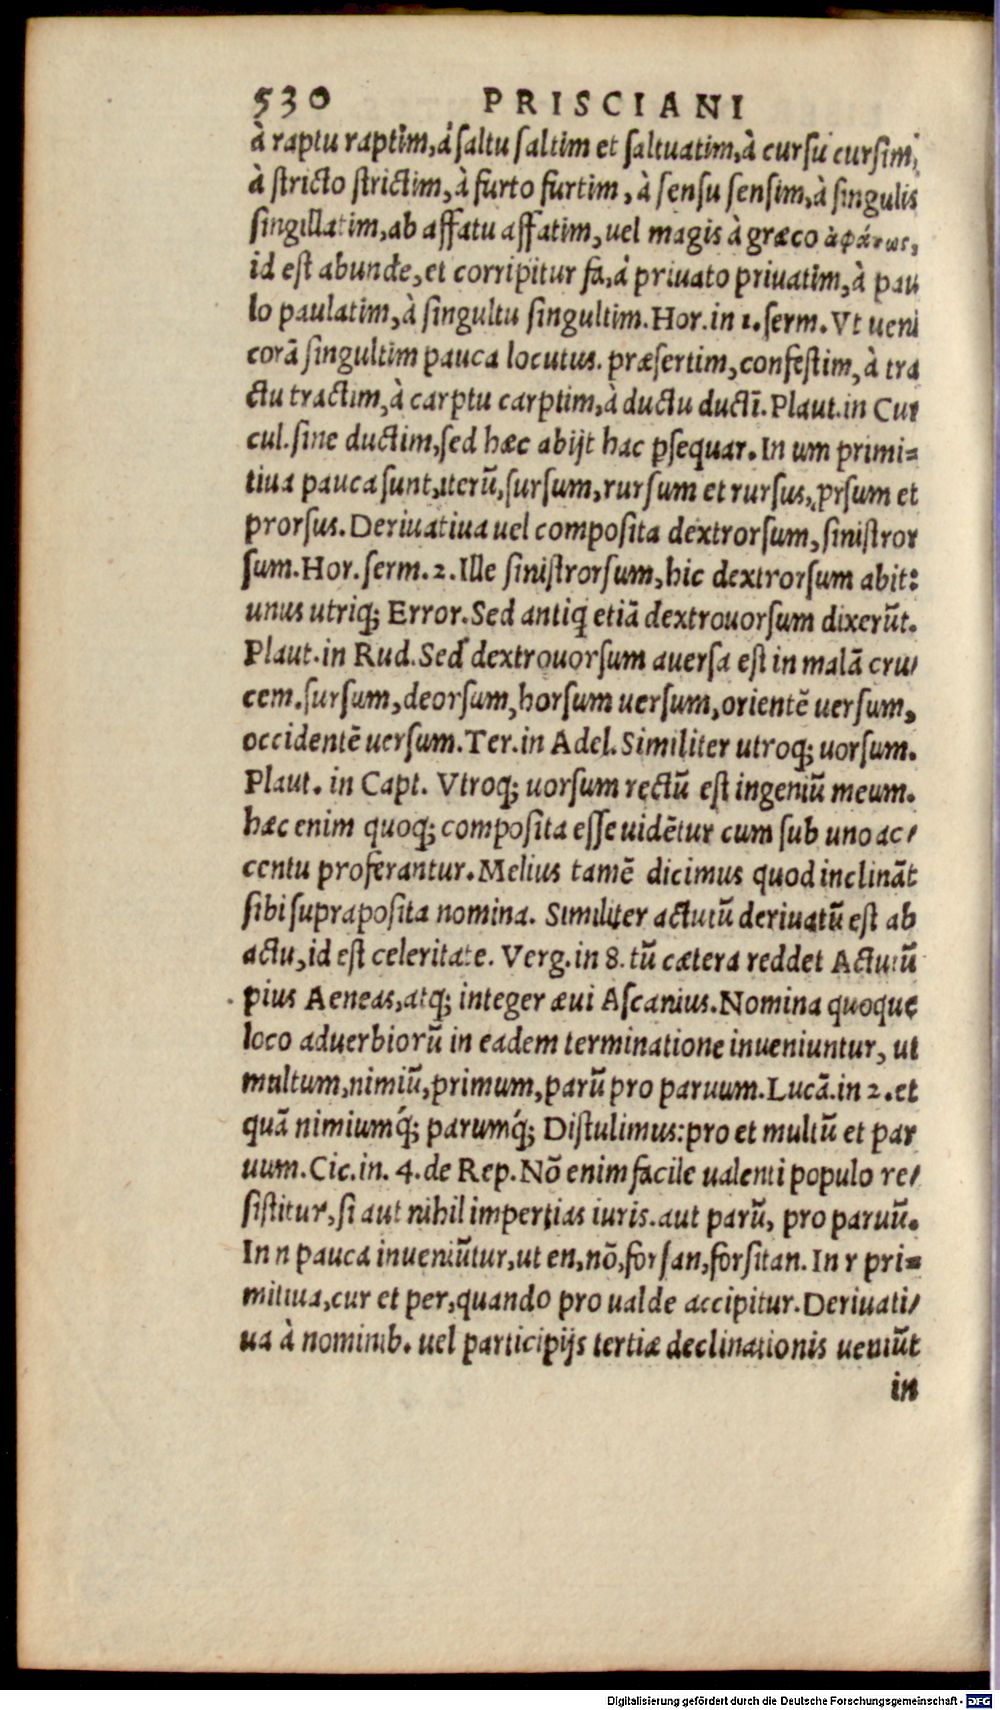 530 PRISCIANI
à raptu raptim, à ſaltu ſaltim et ſaltuatim, à curſu curſim,
à ſtricto ſtrictim, à furto furtim, à ſenſu ſenſim, à ſingulis
ſingillatim, ab affatu affatim, uel magis à græco ἀφάτως,
id eſt abunde, et corripitur fa, à priuato priuatim, à pau
lo paulatim, à ſingultu ſingultim. Hor. in 1. ſerm. Vt ueni
corā ſingultim pauca locutus. præſertim, confeſtim, à tra
ctu tractim, à carptu carptim, à ductu ductī. Plaut. in Cur
cul. ſine ductim, ſed hæc abijt hac ꝑſequar. In um primi=
tiua pauca ſunt, iterū, ſurſum, rurſum et rurſus, ꝓrſum et
prorſus. Deriuatiua uel compoſita dextrorſum, ſiniſtror
ſum. Hor. ſerm. 2. Ille ſiniſtrorſum, hic dextrorſum abit:
unus utriq; Error. Sed antiq etiā dextrouorſum dixerūt.
Plaut. in Rud. Sed dextrouorſum auerſa eſt in malā cru/
cem. ſurſum, deorſum, horſum uerſum, orientē uerſum,
occidentē uerſum. Ter. in Adel. Similiter utroq; uorſum.
Plaut. in Capt. Vtroq; uorſum rectū eſt ingeniū meum.
hæc enim quoq; compoſita eſſe uidētur cum ſub uno ac/
centu proferantur. Melius tamē dicimus quod inclināt
ſibi ſupraposita nomina. Similiter actutū deriuatū eſt ab
actu, id eſt celeritate. Verg. in 8. tū cætera reddet Actutū
pius Aeneas, atq; integer æui Aſcanius. Nomina quoque
loco aduerbiorū in eadem terminatione inueniuntur, ut
multum, nimiū, primum, parū pro paruum. Lucā. in 2. et
quā nimiumq́; parumq́; Diſtulimus: pro et multū et par
uum. Cic. in. 4. de Rep. Nō enim facile ualenti populo re/
ſiſtitur, ſi aut nihil impertias iuris. aut parū, pro paruū.
In n pauca inueniūtur, ut en, nō, forſan, forſitan. In r pri=
mitiua, cur et per, quando pro ualde accipitur. Deriuati/
ua à nominib. uel participijs tertiæ declinationis ueniūt
in
Digitalisierung gefördert durch die Deutsche Forschungsgemeinschaft - DFG